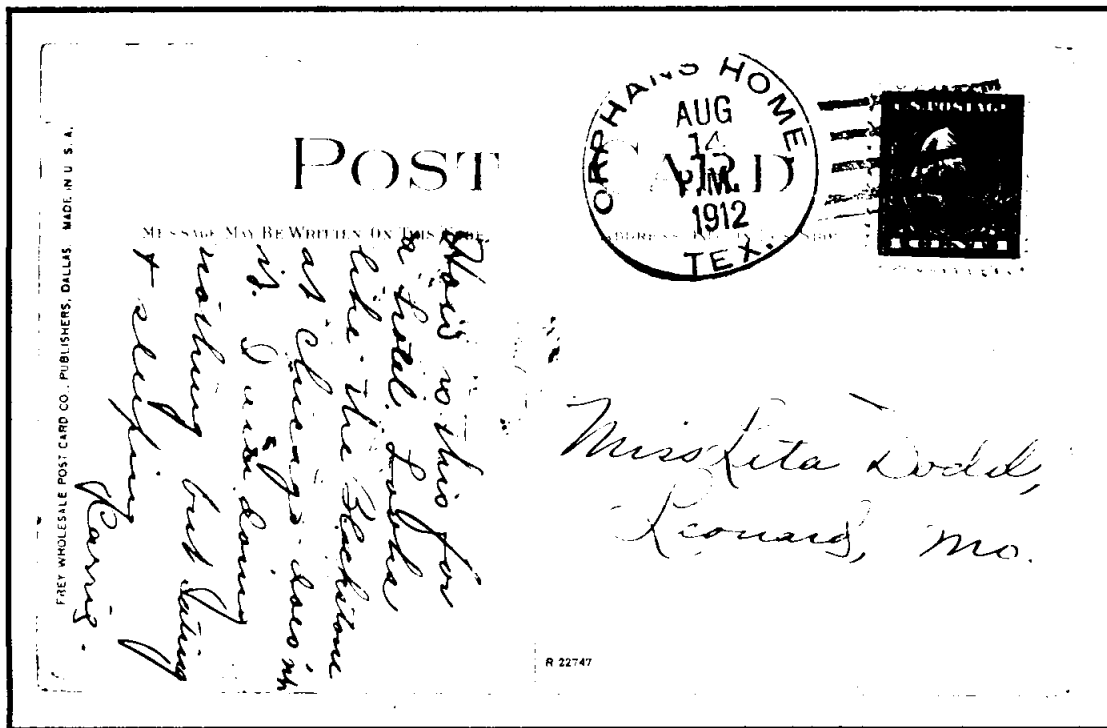 FREY WHOLESALE POST CARD CO., PUBLISHERS, DALLAS. MADE IN U.S.A.
POST CARD
MESSAGE MAY BE WRITTEN ON THIS SIDE.
ADDRESS
ORPHANS HOME
AUG
14
P.M.
1912
TEX.
U.S. POSTAGE
1 CENT 1
How is this for
a hotel. Looks
like the Blackstone
at Chicago does'nt
it. I am doing
nothing but eating
+ sleeping
Miss Leta Dodd,
Leonard, Mo.
R 22747